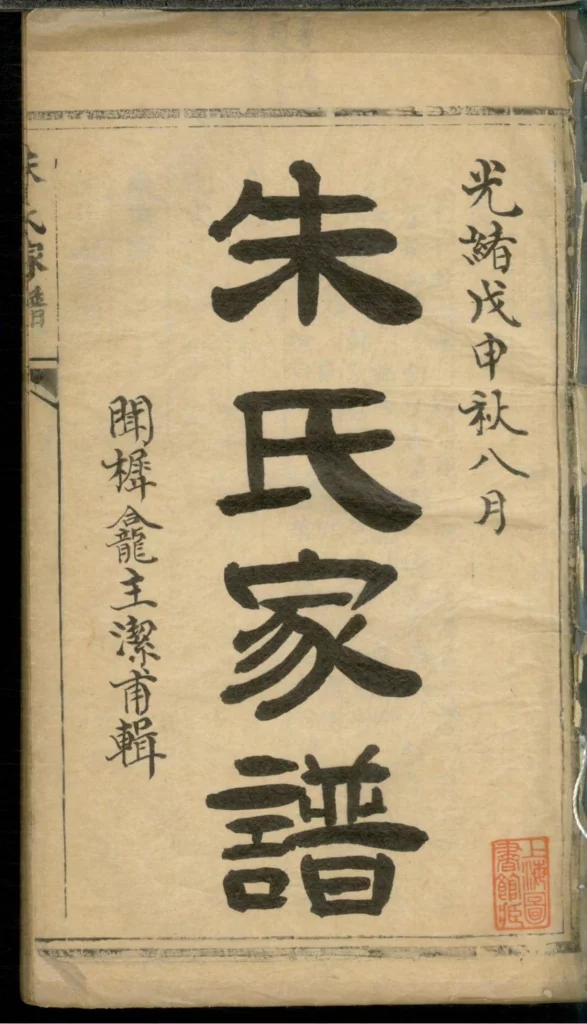 光緒戊申秋八月
朱氏家譜
聞樨龕主潔甫輯
朱氏家譜
上海圖
書館藏